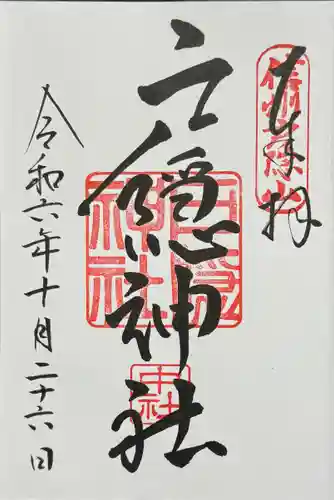 奉拝
信州戸隠山
戸隠神社
戸隠
神社
中社
令和六年十月二十六日